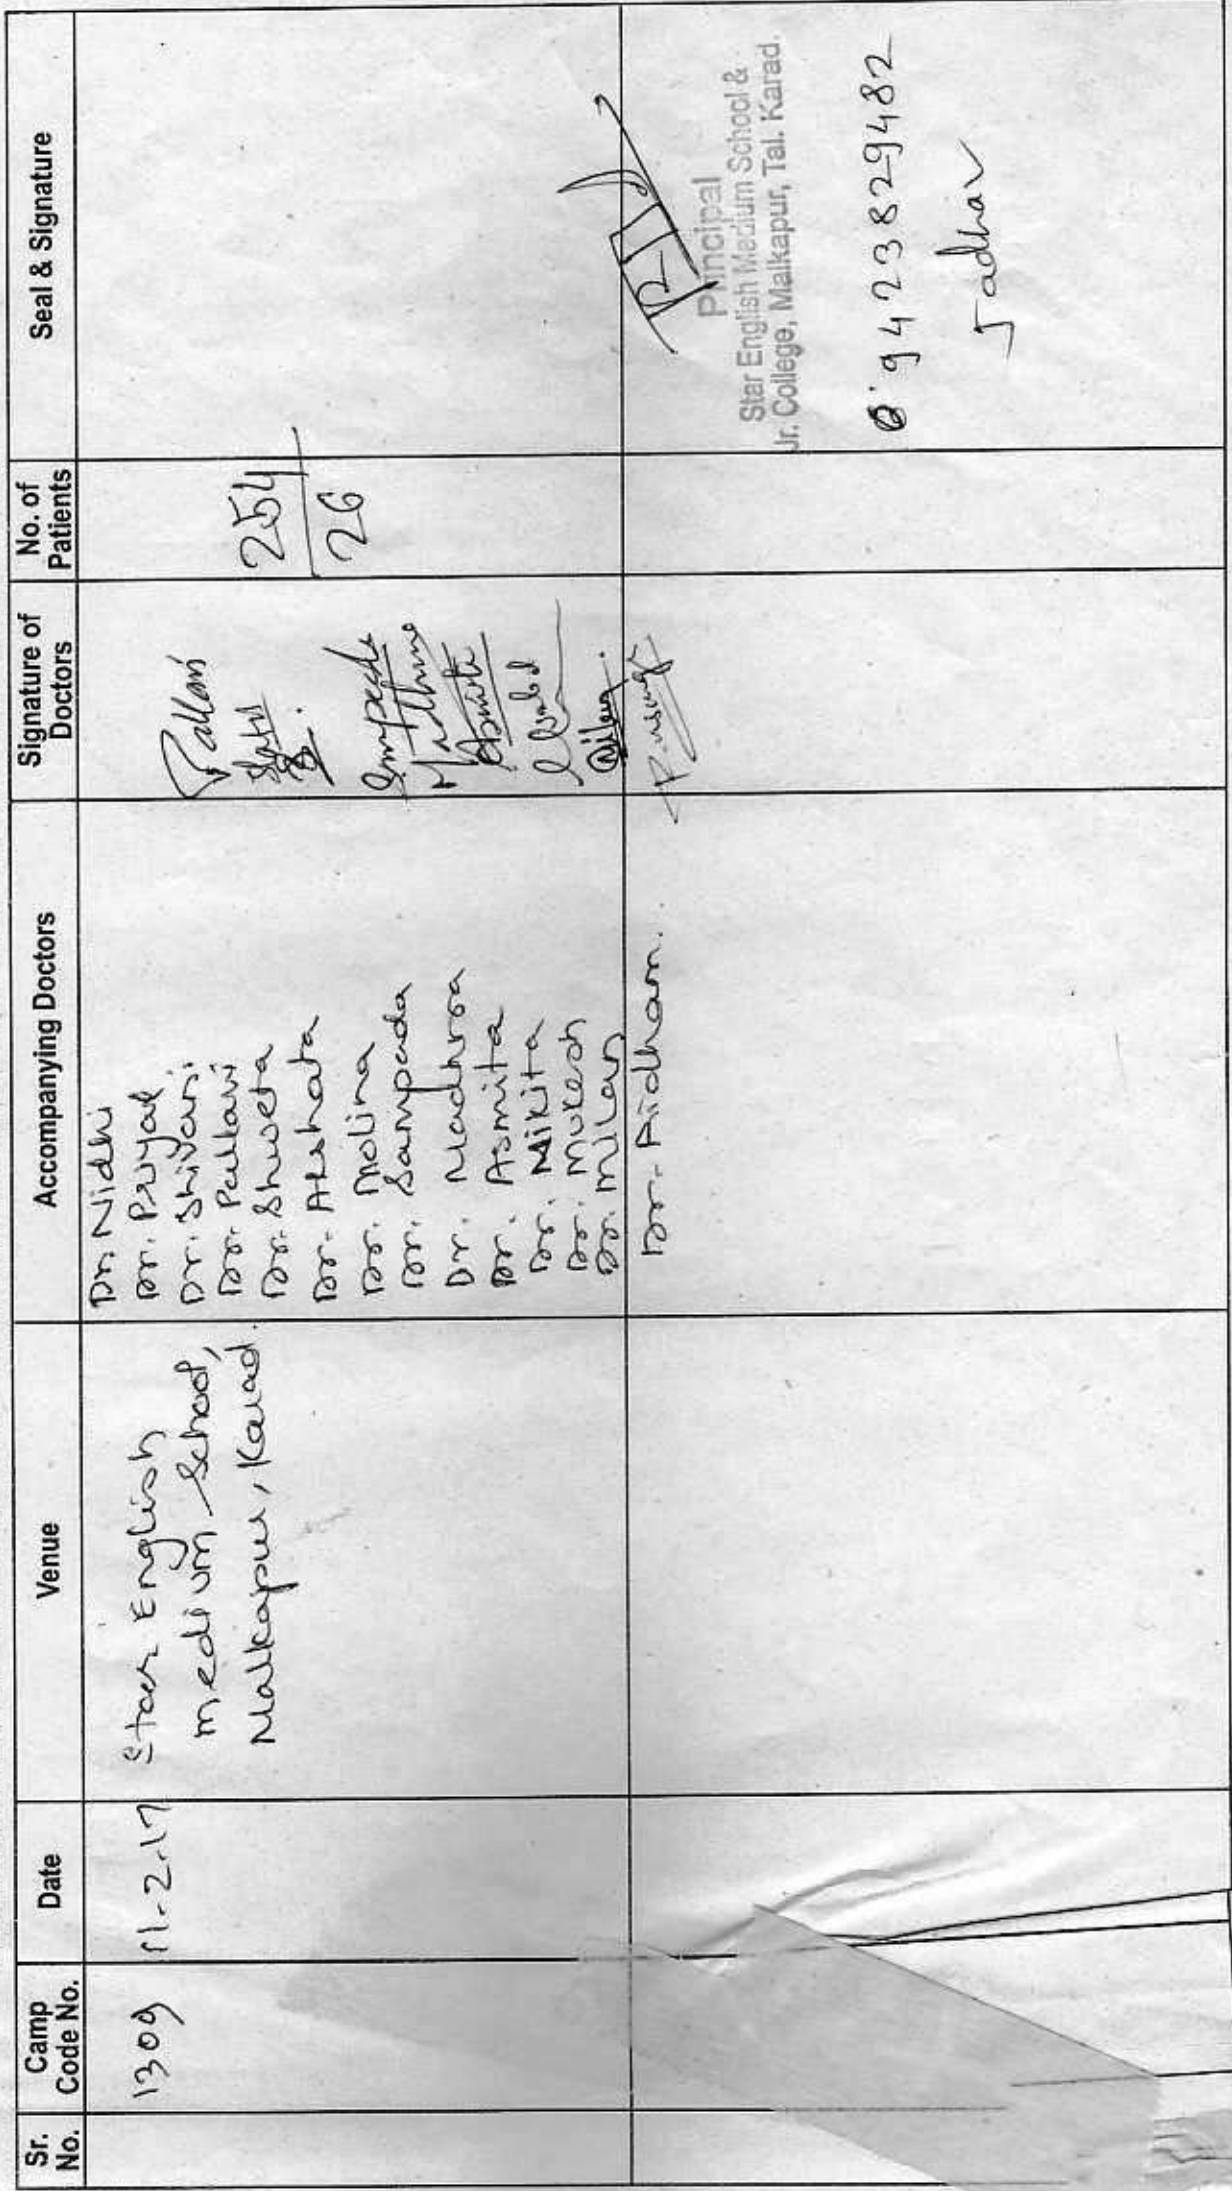 Sr. No.
Camp Code No.
Date
Venue
Accompanying Doctors
Signature of Doctors
No. of Patients
Seal & Signature
1309
11-2-17
Star English
medium School,
Malkapur, Karad.
Dr. Nidhi
Dr. Priyal
Dr. Shivani
Dr. Pallavi
Dr. Shweta
Dr. Akshata
Dr. Molina
Dr. Sampada
Dr. Madhura
Dr. Asmita
Dr. Nikita
Dr. Mukesh
Dr. Milan
Dr. Ridham.
Pallavi
Sampada
Madhura
Asmita
254
26
Principal
Star English Medium School &
Jr. College, Malkapur, Tal. Karad.
9423829482
Jadhav